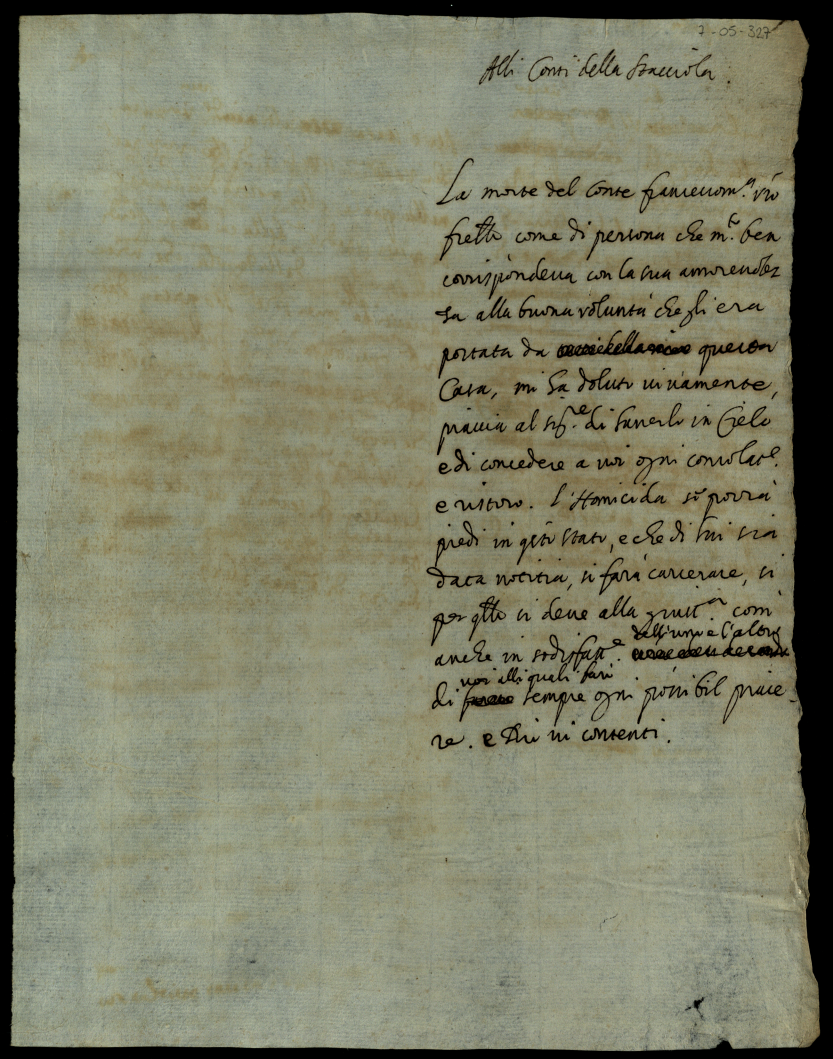 7-05-327
Alli Conti della Stacciola.
La morte del Conte Francescom.ª vro
frello come di persona che m.to ben
corrispondeua con la sua amoreuolez
za alla buona voluntà che gli era
portata da questa
Casa, mi ha doluto viuamente,
piaccia al sig.re di hauerlo in Cielo
e di concedere a voi ogni consolat.e
e ristoro. l'Homicida se porrà
piedi in qsto stato, e che di lui sia
data notitia, si farà carcerare, si
per qllo si deue alla giust.ª come
anche in sodisfatt.e dell'uno e l'altro
di voi alli quali farò sempre ogni possibil piace-
re. e Dio vi contenti.